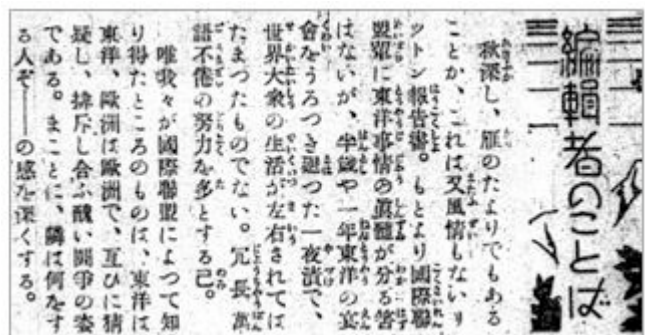 編輯者のことば
秋深し、雁のたよりでもある
ことか、これは又風情もないリ
ットン報告書。もとより國際聯
盟輩に東洋事情の眞髄が分る筈
はないが、半歳や一年東洋の宴
會をうろつき廻つた一夜漬で、
世界大衆の生活が左右されては
たまつたものでない。冗長萬
語不倦の努力を多とする已。
唯我々が國際聯盟によつて知
り得たところのものは、東洋は
東洋、歐洲は歐洲で、互ひに猜
疑し、排斥し合ふ醜い鬪爭の姿
である。まことに、隣は何をす
る人ぞ――の感を深くする。